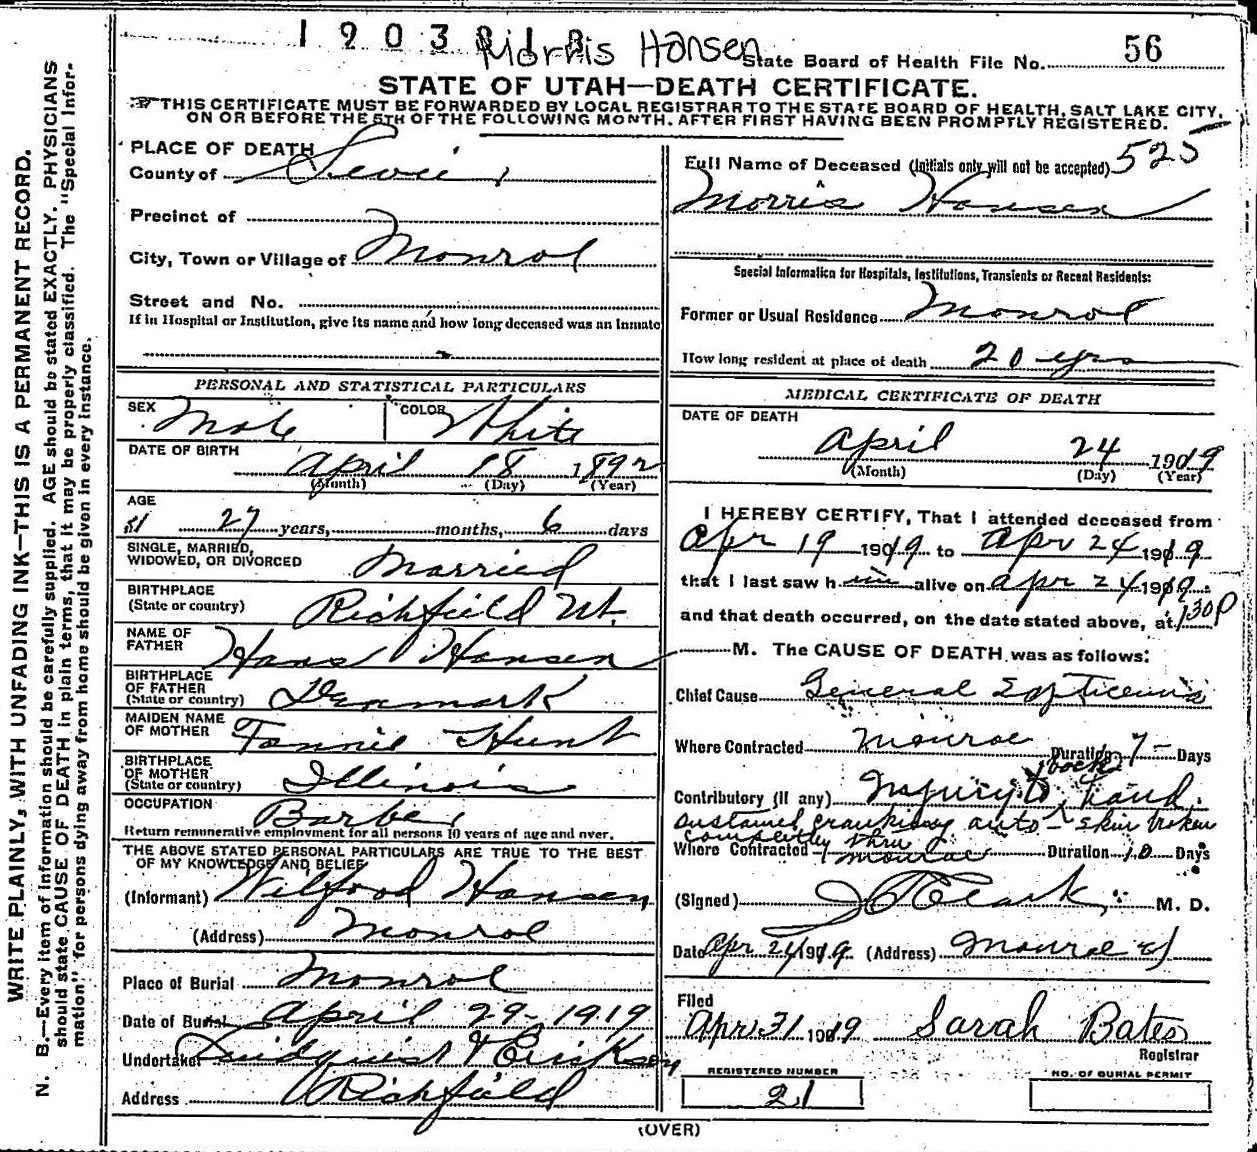 1 9 0 3 8 1 8 Morris Hansen
State Board of Health File No. 56
STATE OF UTAH—DEATH CERTIFICATE.
THIS CERTIFICATE MUST BE FORWARDED BY LOCAL REGISTRAR TO THE STATE BOARD OF HEALTH, SALT LAKE CITY,
ON OR BEFORE THE 5TH OF THE FOLLOWING MONTH, AFTER FIRST HAVING BEEN PROMPTLY REGISTERED.
WRITE PLAINLY, WITH UNFADING INK—THIS IS A PERMANENT RECORD.
N. B.—Every item of information should be carefully supplied. AGE should be stated EXACTLY. PHYSICIANS
should state CAUSE OF DEATH in plain terms, that it may be properly classified. The "Special Infor-
mation" for persons dying away from home should be given in every instance.
PLACE OF DEATH
County of Sevier
Precinct of
City, Town or Village of Monroe
Street and No.
If in Hospital or Institution, give its name and how long deceased was an Inmate
PERSONAL AND STATISTICAL PARTICULARS
SEX Male COLOR White
DATE OF BIRTH
April 18 1892
(Month) (Day) (Year)
AGE
27 years, months, 6 days
SINGLE, MARRIED,
WIDOWED, OR DIVORCED Married
BIRTHPLACE
(State or country) Richfield Ut.
NAME OF
FATHER Hans Hansen
BIRTHPLACE
OF FATHER
(State or country) Denmark
MAIDEN NAME
OF MOTHER Fannie Hunt
BIRTHPLACE
OF MOTHER
(State or country) Illinois
OCCUPATION Barber
Return remunerative employment for all persons 10 years of age and over.
THE ABOVE STATED PERSONAL PARTICULARS ARE TRUE TO THE BEST
OF MY KNOWLEDGE AND BELIEF
(Informant) Wilford Hansen
(Address) Monroe
Place of Burial Monroe
Date of Burial April 29 - 1919
Undertaker Lindquist & Erickson
Address Richfield
Full Name of Deceased (Initials only will not be accepted) 525
Morris Hansen
Special Information for Hospitals, Institutions, Transients or Recent Residents:
Former or Usual Residence Monroe
How long resident at place of death 20 yrs
MEDICAL CERTIFICATE OF DEATH
DATE OF DEATH
April 24 1919
(Month) (Day) (Year)
I HEREBY CERTIFY, That I attended deceased from
Apr 19 1919 to Apr 24 1919
that I last saw him alive on Apr 24 1919
and that death occurred, on the date stated above, at 1:30 P
M. The CAUSE OF DEATH was as follows:
Chief Cause General Septicemia
Where Contracted Monroe Duration 7 - Days
Contributory (if any) Injury to back hand
sustained cranking auto - skin broken
completely thru
Where Contracted Monroe Duration 10 Days
(Signed) Clark M. D.
Date Apr 24 1919 (Address) Monroe
Filed
Apr 31 1919 Sarah Bates
Registrar
REGISTERED NUMBER
21
NO. OF BURIAL PERMIT
(OVER)